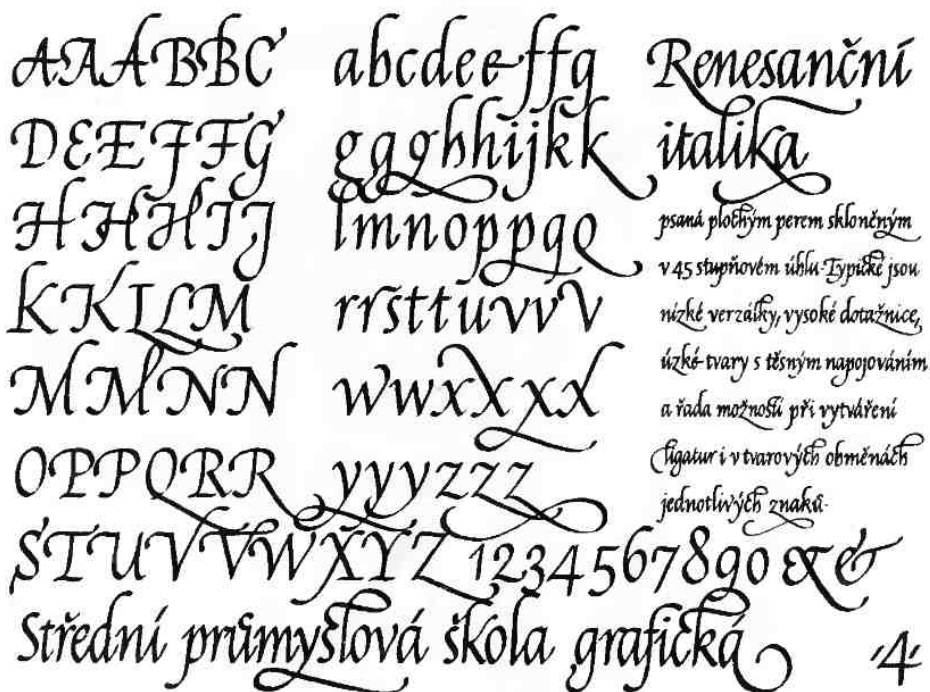 AAABBC
DEEFFG
HHHIJ
KKLLM
MMNN
OPPQRR
abcdeeffg
ggghhijkk
lmnoppqq
rrsttuvvv
wwxxxx
yyyzzz
Renesanční
italika
psaná plochým perem skloněným
v 45 stupňovém úhlu. Typické jsou
nízké verzálky, vysoké dotažnice,
úzké tvary s těsným napojováním
a řada možností při vytváření
ligatur i v tvarových obměnách
jednotlivých znaků.
STUVVWXYZ 1234567890 & &
Střední průmyslová škola grafická
·4·